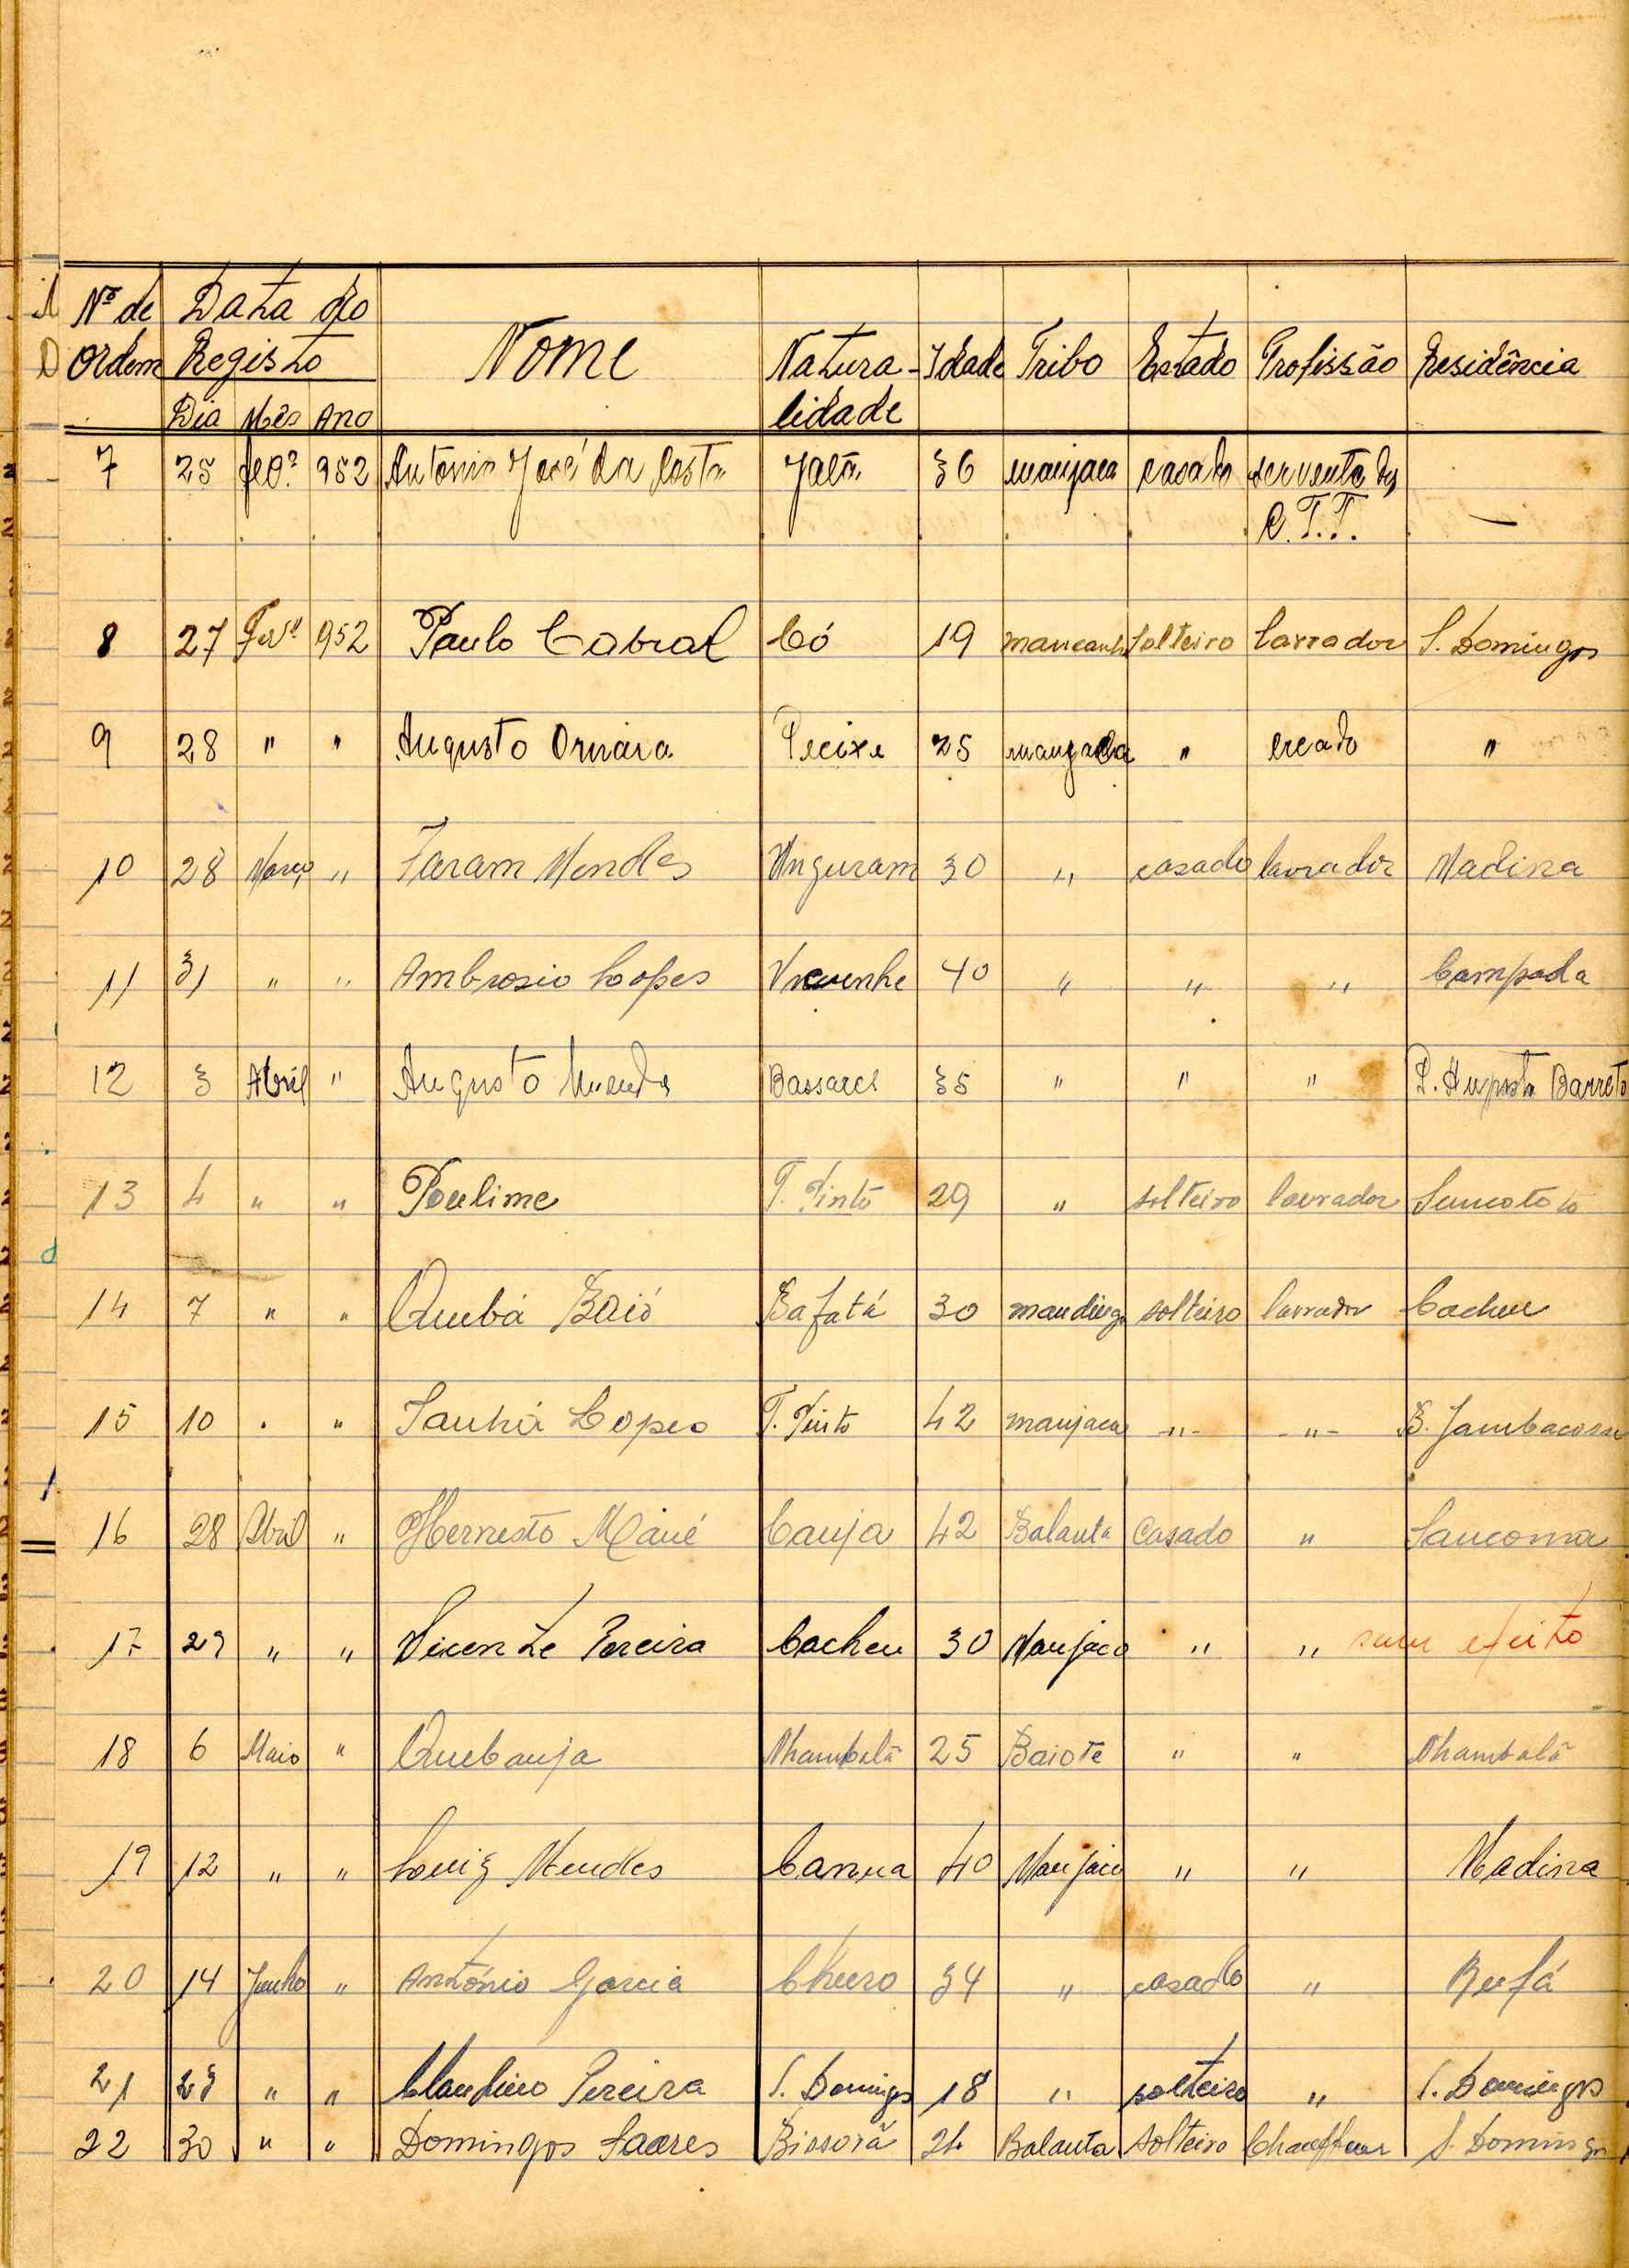 Nº de Data do
Ordem Registo Nome Natura- Idade Tribo Estado Profissão Residência
Dia Mês Ano lidade
7 25 fevº 952 António José da Costa Jatã 36 manjaca casado servente dos —
C.T.T. —
8 27 Fevº 952 Paulo Cabral Có 19 mancanh solteiro lavrador S. Domingos
9 28 " " Augusto Pecixe 25 manjaca " creado "
10 28 Março " Faram Mendes Unguram 30 " casado lavrador Madina
11 31 " " Ambrosio Lopes 40 " " " Campada
12 3 Abril " Augusto Bassarel 35 " " " P. Augusto Barreto
13 4 " " T. Pinto 29 " solteiro lavrador
14 7 " " Quebá Baió Bafatá 30 mandinga solteiro lavrador Cacheu
15 10 " " Sanhá Lopes T. Pinto 42 manjaca -"- -"-
16 28 Abril " Hernesto Mané Cauja 42 Balanta Casado "
17 29 " " Vicente Pereira Cacheu 30 Manjaco " " sem efeito
18 6 Maio " Quebanja Nhambalã 25 Baiote " " Nhambalã
19 12 " " Luiz Mendes 40 Manjaco " " Madina
20 14 Junho " António Garcia Churo 34 " casado "
21 28 " " Claudino Pereira S. Domingos 18 " solteiro " S. Domingos
22 30 " " Domingos Soares Bissorã 24 Balanta solteiro Chauffeur S. Domingos